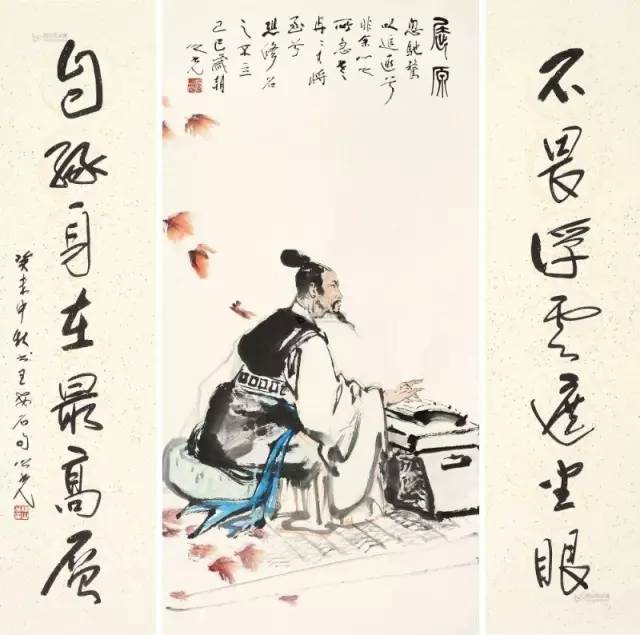 不畏浮云遮望眼
屈原
忽馳騖
以追逐兮
非余心之
所急老
冉冉其將
至兮
恐修名
之不立
己巳歲朝
自緣身在最高层
癸未中秋书王安石句